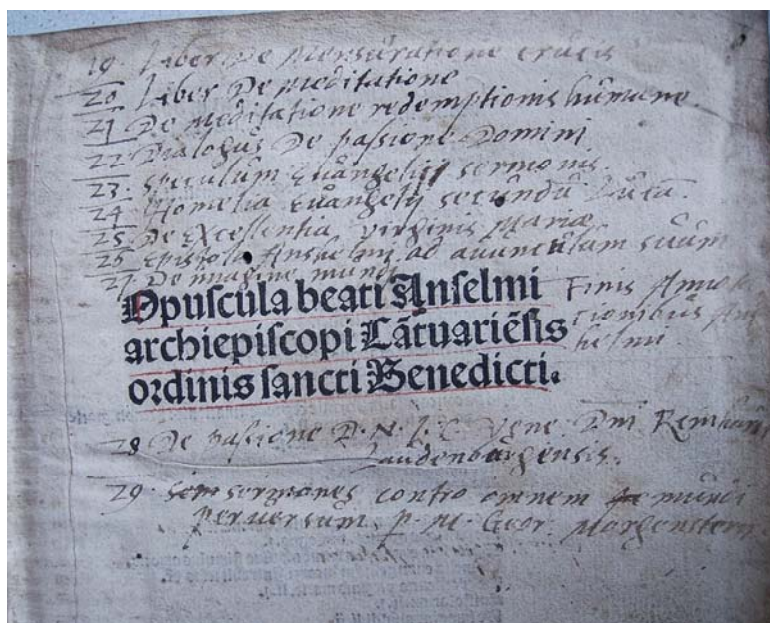 19. Liber De Mensuratione crucis
20 Liber De meditatione
21 De meditatione redemptionis humane.
22 Dialogus De passione Domini
23. Speculum Euangelij sermonis.
24 Homelia Euangelij secundū Lucā.
25 De Excellentia virginis Mariæ
26 Epistola Anshelmi ad auunculum suum
27 De imagine mundi
Opuscula beati Anselmi
archiepiscopi Cātuariēsis
ordinis sancti Benedicti.
Finis
helmi.
28 De passione D. N. J. C.
Laudenburgensis.
29. sermones contro omnem mundi
peruersum p. M. Geor. Morgenstern